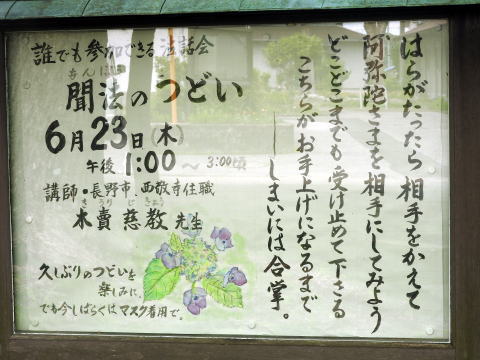 はらがたったら 相手をかえて
阿弥陀さまを 相手にしてみよう
どこどこまでも 受け止めて下さる
こちらがお手上げになるまで
―しまいには 合掌。
誰でも参加できる 法話会
もんぽう
聞法の つどい
6月23日(木)
午後 1:00～3:00頃
講師・長野市、西敬寺住職
きうり じきょう
木賣 慈教 先生
久しぶりのつどいを
楽しみに、
でも今しばらくはマスク着用で。